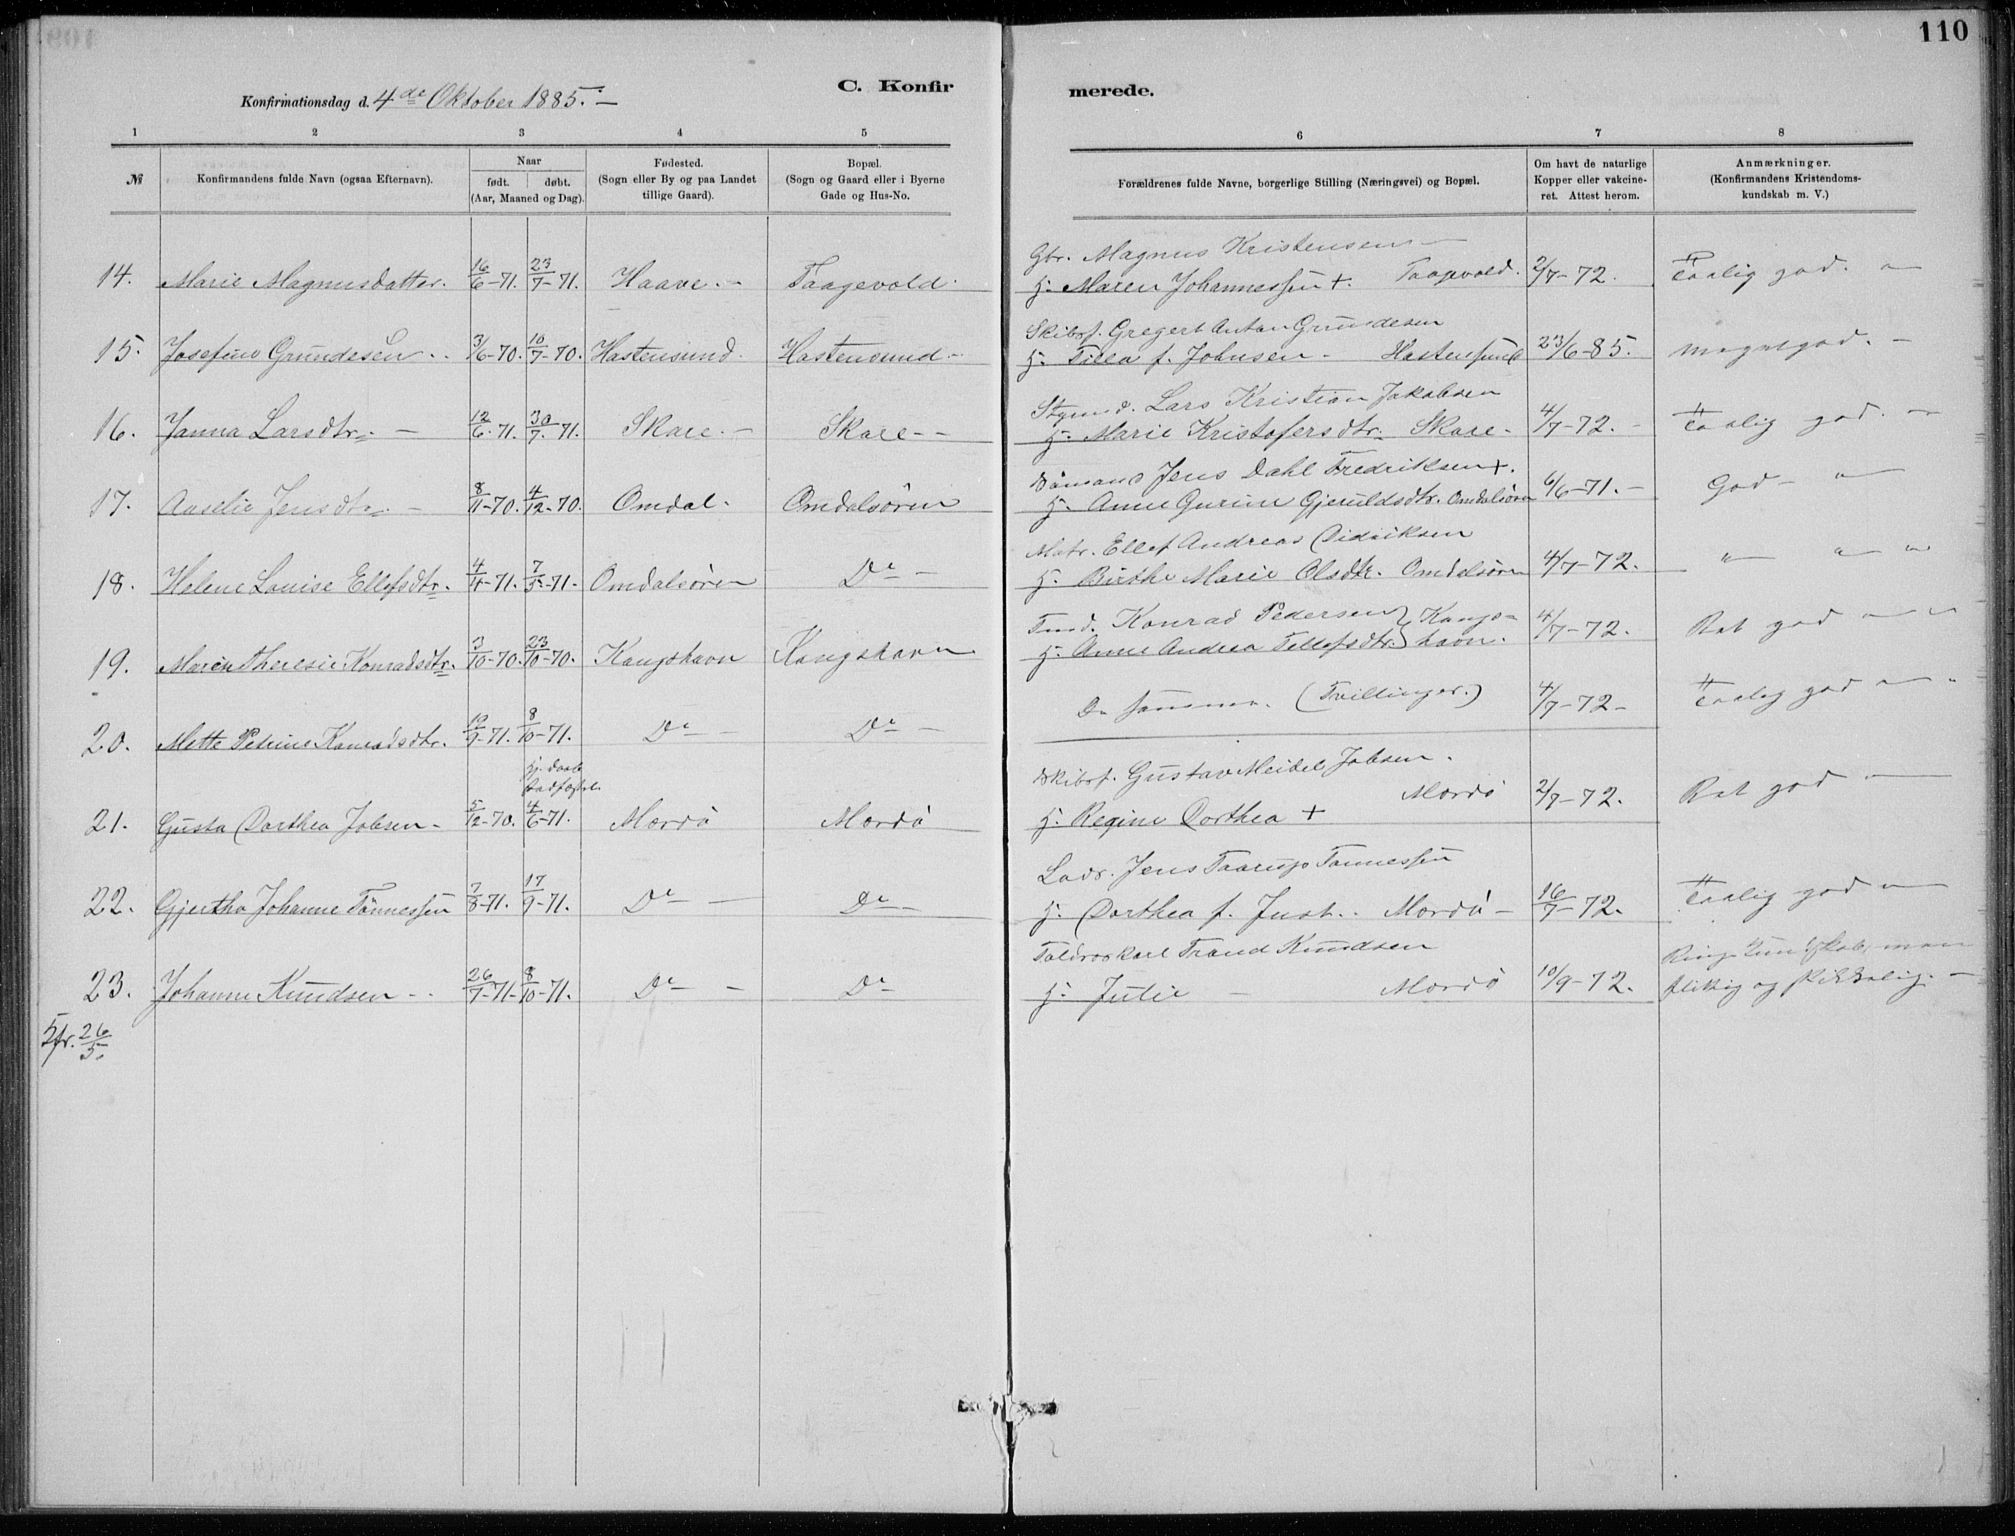 110
C. Konfirmerede.
Konfirmationsdag d. 4de Oktober 1885.-
1 2 3 4 5 6 7 8
№
Konfirmandens fulde Navn (ogsaa Efternavn).
Naar
født. døbt.
(Aar, Maaned og Dag).
Fødested.
(Sogn eller By og paa Landet
tillige Gaard).
Bopæl.
(Sogn og Gaard eller i Byerne
Gade og Hus-No.
Forældrenes fulde Navne, borgerlige Stilling (Næringsvei) og Bopæl.
Om havt de naturlige
Kopper eller vakcine-
ret. Attest herom.
Anmærkninger.
(Konfirmandens Kristendoms-
kundskab m. V.)
Gbr. Magnus Kristensen
14. Marie Magnusdatter. 16/6-71. 23/7-71. Haave.- Taagevold. H: Maren Johannessen +. 2/7-72. Taalig god.
Skibsf. Gregert Anton Grundesen
15. Josefine Grundesen.. 3/6-70. 10/7-70. Hastensund. Hastensund- H: f. Johnsen - Hastensund 23/6-85. meget god. -
Lars Kristian Jakobsen
16. Janna Larsdtr. - 12/6-71. 30/7-71. Skare.- Skare-- H: Marie Kristofersdtr. Skare- 4/7-72. - Taalig god.
Jens Dahl Fredriksen +.
17. Aaselie Jensdtr. - 8/11-70. 4/12-70. Omdal. Omdalsören H: Anne Gurine Gjeruldsdtr. Omdalsören 6/6-71. - God -
Matr. Ellef Andreas Didriksen
18. Helene Louise Ellefsdtr. 4/4-71. 7/5-71. Omdalsören Do- H: Birthe Marie Olsdtr. Omdalsören 4/7-72. " "
Konrad Pedersen } Kangs-
19. Maren Theresie Konradsdtr. 3/10-70. 23/10-70. Kangshavn Kangshavn H: Anne Andrea Tellefsdtr. } havn. 4/7-72. Ret god
20. Mette Petrine Konradsdtr. 10/9-71. 8/10-71. Do - Do - De samme. (Tvillinger.) 4/7-72- Taalig god
Hj. daab
stadfæstet.
Skibsf. Gustav Meidel Jobsen.
21. Gusta Dorthea Jobsen- 5/12-70. 4/6-71. Mærdö Mærdö H: Regine Dorthea + Mærdö 2/7-72. Ret god
Lods. Jens Taarup Tönnessen
22. Gjertha Johanne Tönnessen 7/8-71. 17/9-71. Do - Do - H: Dorthea f. Just.. Mærdö- 16/7-72. Taalig god
Toldroskarl Trond Knudsen
23. Johanne Knudsen-. 26/7-71- 8/10-71. Do - Do H: Julie - Mærdö 10/9-72. Ring. Kundskab, men
flittig og skikkelig. -
26/5.